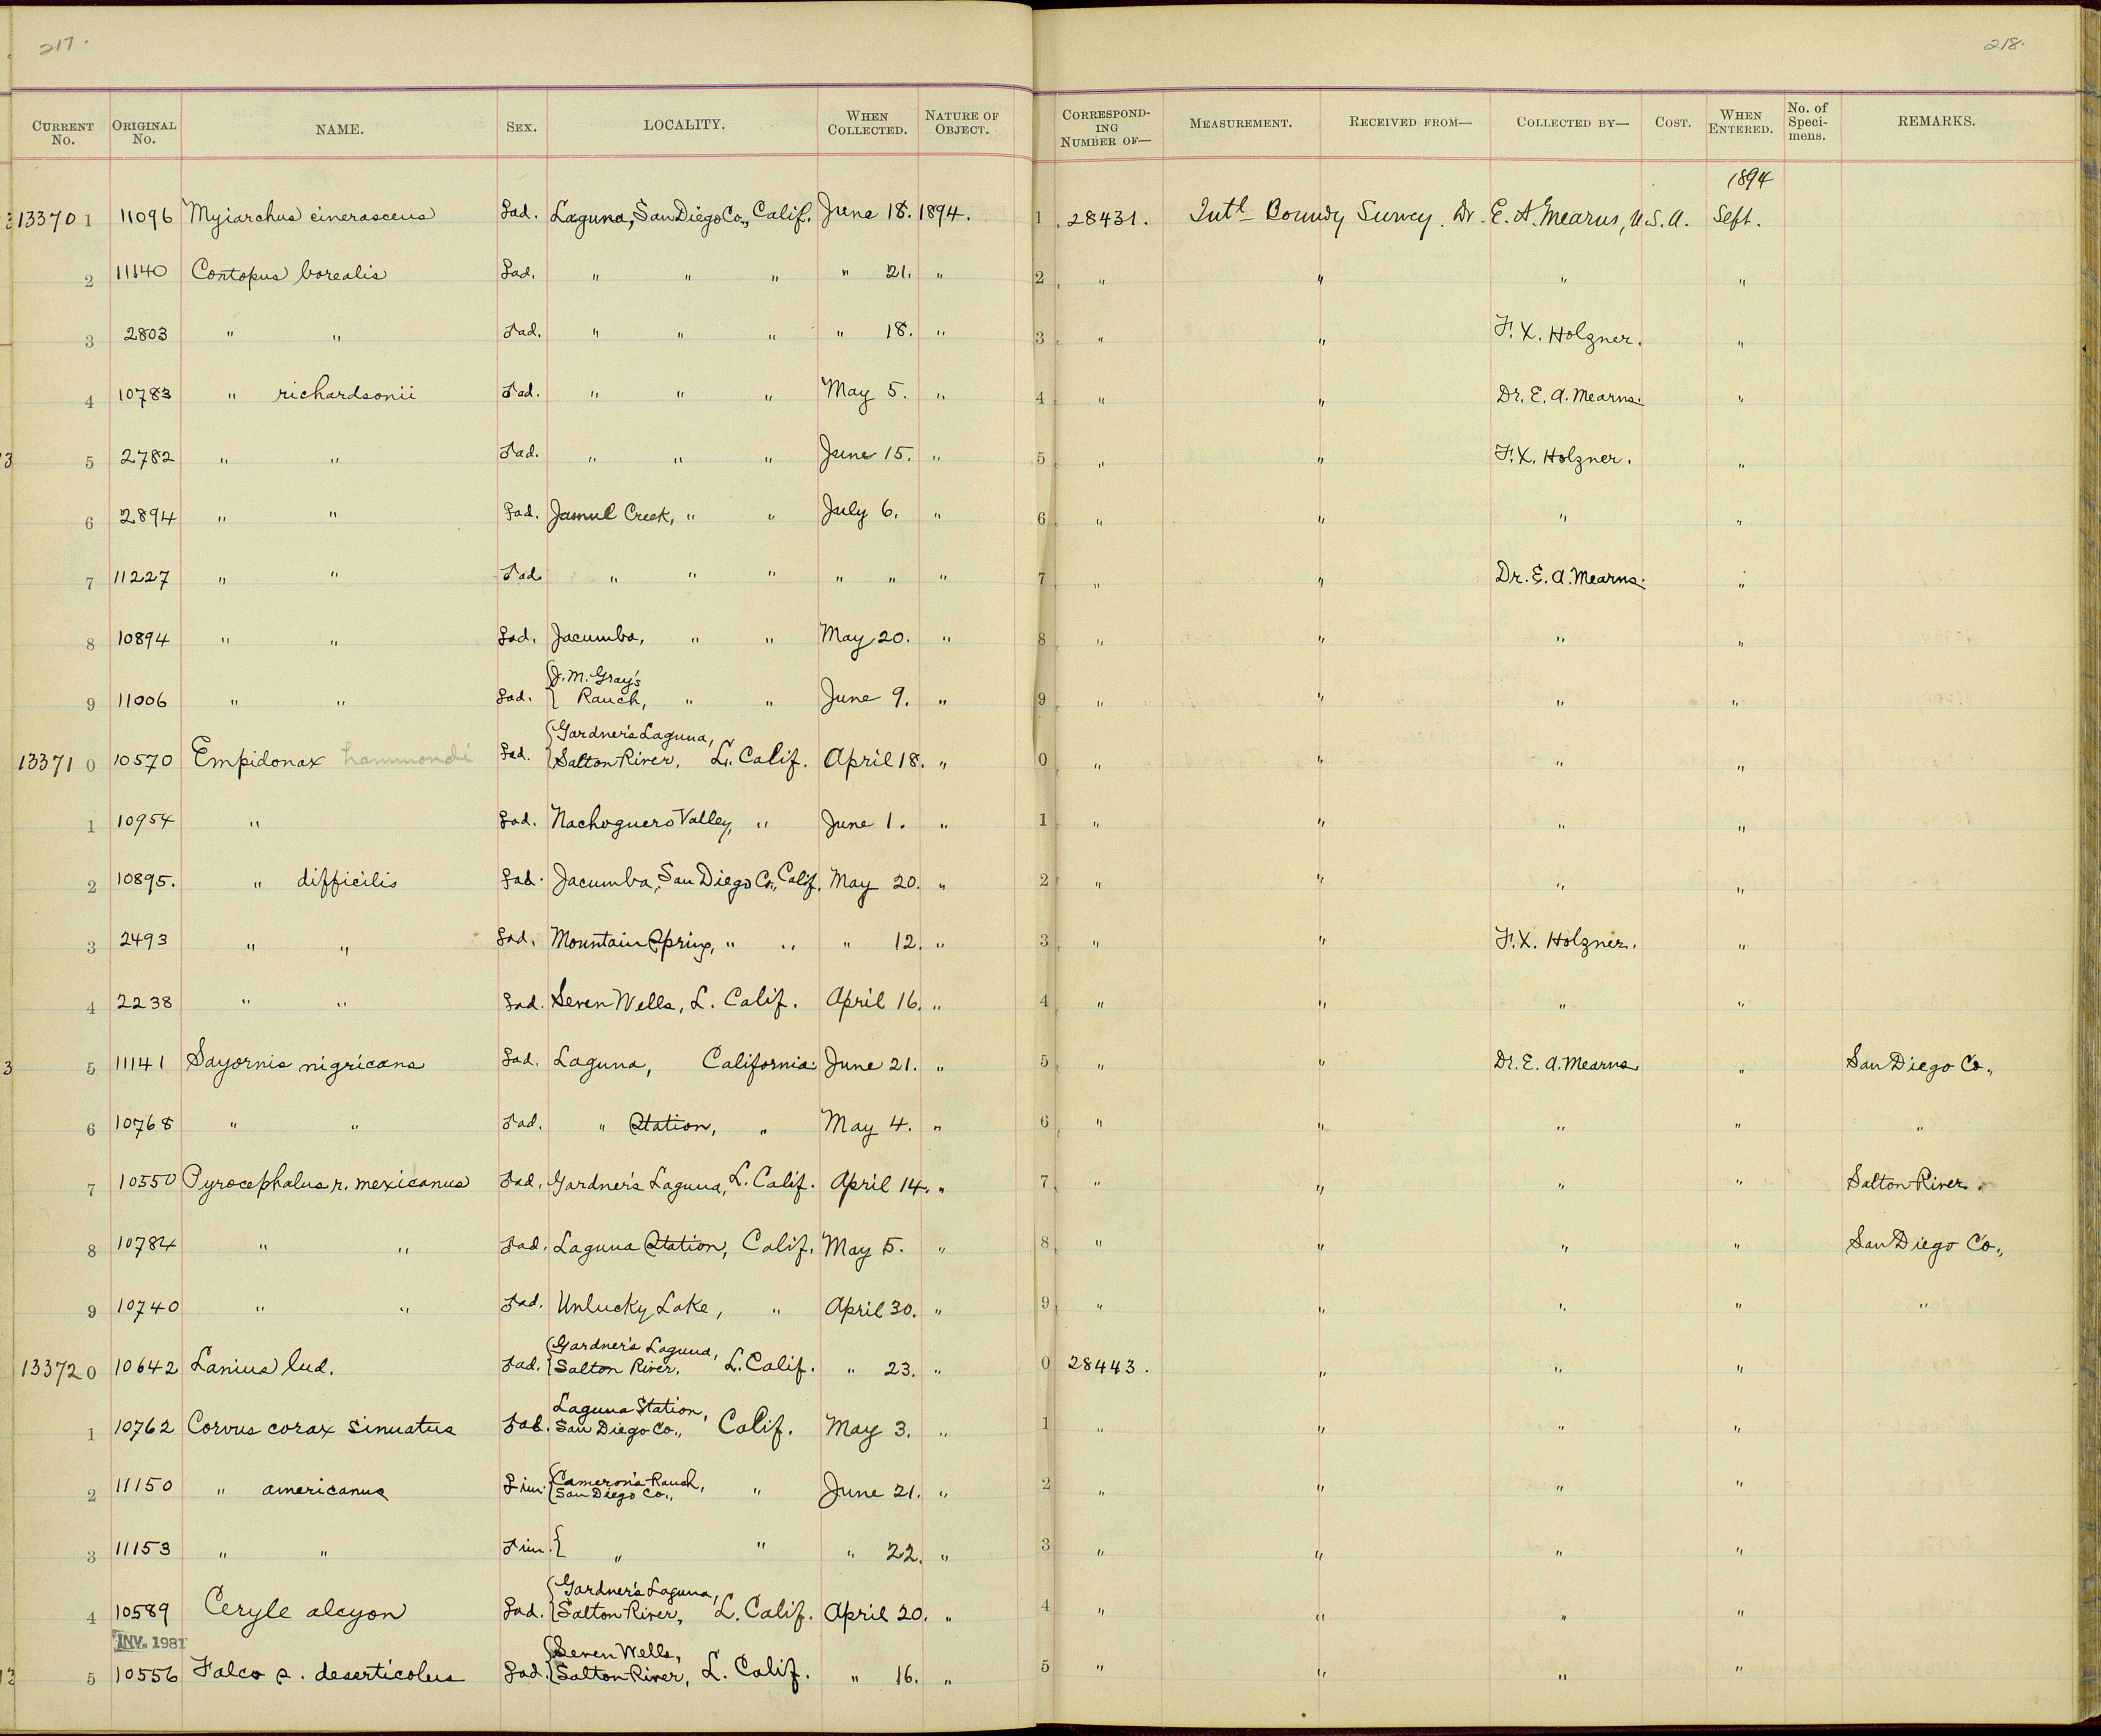 217.
218.
CURRENT No. ORIGINAL No. NAME. SEX. LOCALITY. WHEN COLLECTED. NATURE OF OBJECT. CORRESPONDING NUMBER OF— MEASUREMENT. RECEIVED FROM— COLLECTED BY— COST. WHEN ENTERED. No. of Specimens. REMARKS.
1894
13370 1 11096 Myiarchus cinerascens ad. Laguna, San Diego Co., Calif. June 18. 1894. 1 28431. Intl Boundy Survey. Dr. E. A. Mearns, U.S.A. Sept.
2 11140 Contopus borealis ad. " " " " 21. " 2 " " " "
3 2803 " " ad. " " " " 18. " 3 " " F. X. Holzner. "
4 10783 " richardsonii ad. " " " May 5. " 4 " " Dr. E. A. Mearns. "
5 2782 " " ad. " " " June 15. " 5 " " F. X. Holzner. "
6 2894 " " ad. Jamul Creek, " " July 6. " 6 " " " "
7 11227 " " ad " " " " " " 7 " " Dr. E. A. Mearns. "
8 10894 " " ad. Jacumba, " " May 20. " 8 " " " "
9 11006 " " ad. J. M. Gray's Ranch, " " June 9. " 9 " " " "
13371 0 10570 Empidonax hammondi ad. Gardner's Laguna, Salton River, L. Calif. April 18. " 0 " " " "
1 10954 " ad. Nachoguero Valley, " June 1. " 1 " " " "
2 10895. " difficilis ad. Jacumba, San Diego Co., Calif. May 20. " 2 " " " "
3 2493 " " ad. Mountain Spring, " " " 12. " 3 " " F. X. Holzner. "
4 2238 " " ad. Seven Wells, L. Calif. April 16. " 4 " " " "
5 11141 Sayornis nigricans ad. Laguna, California. June 21. " 5 " " Dr. E. A. Mearns " San Diego Co.,
6 10768 " " ad. " Station, " May 4. " 6 " " " " "
7 10550 Pyrocephalus r. mexicanus ad. Gardner's Laguna, L. Calif. April 14. " 7 " " " " Salton River.
8 10784 " " ad. Laguna Station, Calif. May 5. " 8 " " " " San Diego Co.,
9 10740 " " ad. Unlucky Lake, " April 30. " 9 " " " " "
13372 0 10642 Lanius lud. ad. Gardner's Laguna, Salton River, L. Calif. " 23. " 0 28443. " " "
1 10762 Corvus corax sinuatus ad. Laguna Station, San Diego Co., Calif. May 3. " 1 " " " "
2 11150 " americanus im. Cameron's Ranch, San Diego Co., " June 21. " 2 " " " "
3 11153 " " im. " " " 22. " 3 " " " "
4 10589 Ceryle alcyon ad. Gardner's Laguna, Salton River, L. Calif. April 20. " 4 " " " "
INV. 1981
5 10556 Falco s. deserticolus ad. Seven Wells, Salton River, L. Calif. " 16. " 5 " " " "